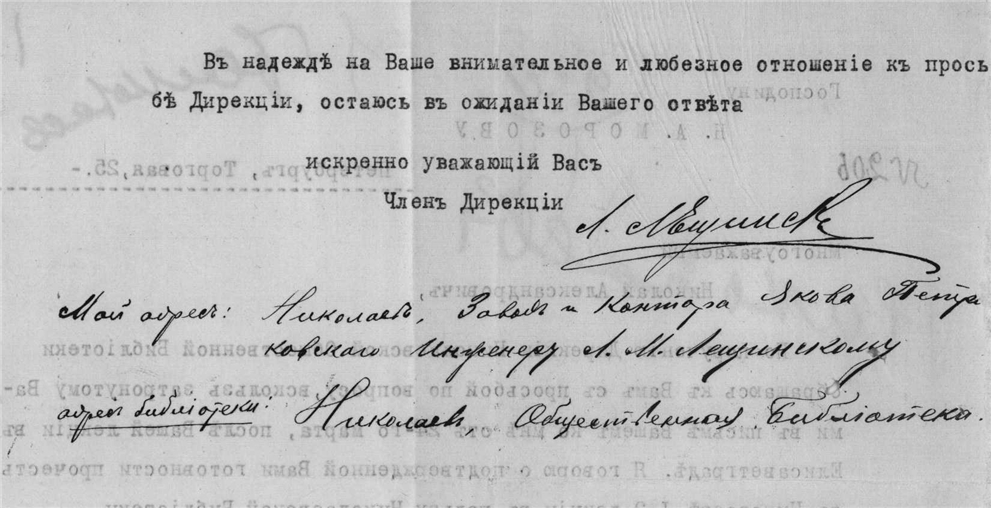 Въ надеждѣ на Ваше внимательное и любезное отношеніе къ прось
бѣ Дирекціи, остаюсь въ ожиданіи Вашего отвѣта
искренно уважающій Васъ
Членъ Дирекціи
Л. Лещинск
Мой адресъ: Николаевъ, Заводъ и Контора Якова Петри
ковскаго Инженеру Л. М. Лещинскому
адресъ библіотеки: Николаевъ, Общественная Библіотека.